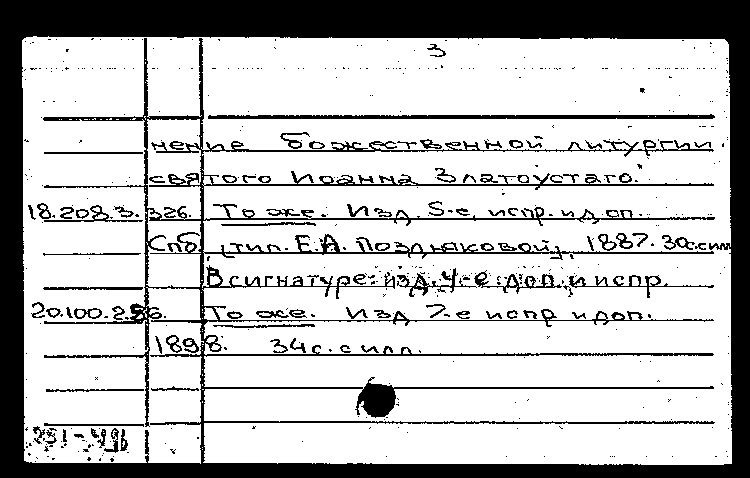 3
нение божественной литургии
святого Иоанна Златоустаго.
18.208.3.326. То же. Изд. 5-е, испр. и доп.
Спб., [тип. Е.А. Поздняковой], 1887. 30с. с илл.
В сигнатуре: изд. 4-е доп. и испр.
20.100.2 То же. Изд 7-е испр и доп.
1898. 34с. с илл.